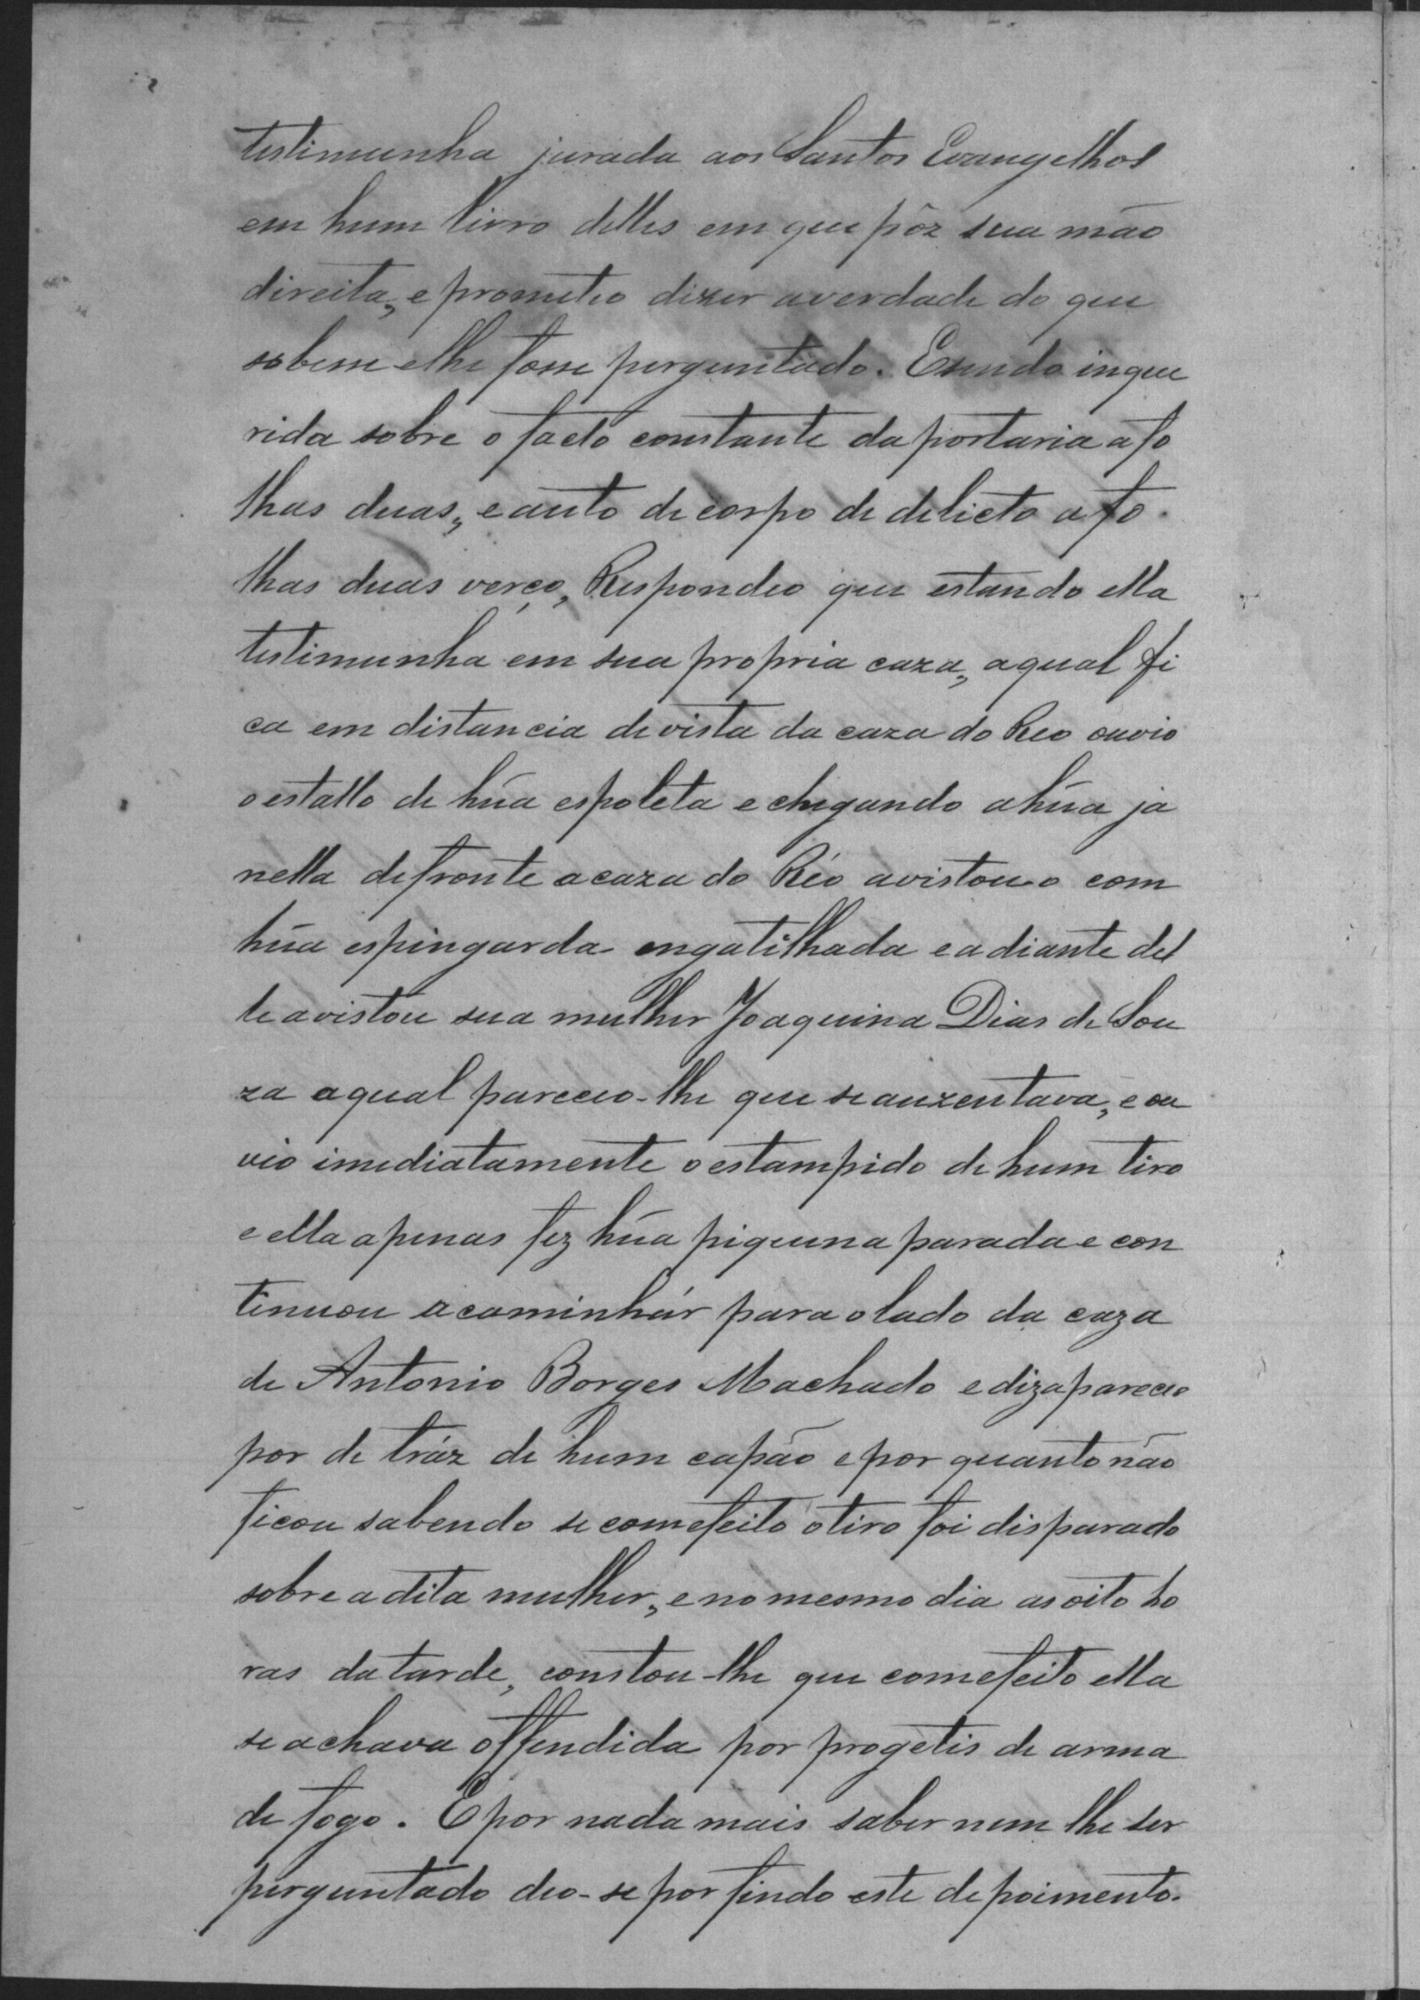 testimunha jurada aos Santos Evangelhos
em hum livro delles em que pôz sua mão
direita, e prometeo dizer a verdade do que
sobesse e lhe fosse perguntado. E sendo inque
rida sobre o facto constante da portaria a fo
lhas duas, e auto de corpo de delicto a fo
lhas duas verço, Respondeo que estando ella
testimunha em sua propria caza, a qual fi
ca em distancia de vista da caza do Reo ouvio
o estallo de hũa espoleta e chegando a hũa ja
nella defronte a caza do Réo avistou-o com
hũa espingarda engatilhada e a diante del
le avistou sua mulher Joaquina Dias de Sou
za a qual pareceo-lhe que se auzentava, e ou
vio imediatamente o estampido de hum tiro
e ella apenas fez hũa piquena parada e con
tinuou a caminhár para o lado da caza
de Antonio Borges Machado e dizapareceo
por de tráz de hum capão e por quanto não
ficou sabendo se com efeito o tiro foi disparado
sobre a dita mulher, e no mesmo dia as oito ho
ras da tarde, constou-lhe que com efeito ella
se achava offendida por progetis de arma
de fogo. E por nada mais saber nem lhe ser
perguntado deo-se por findo este depoimento.